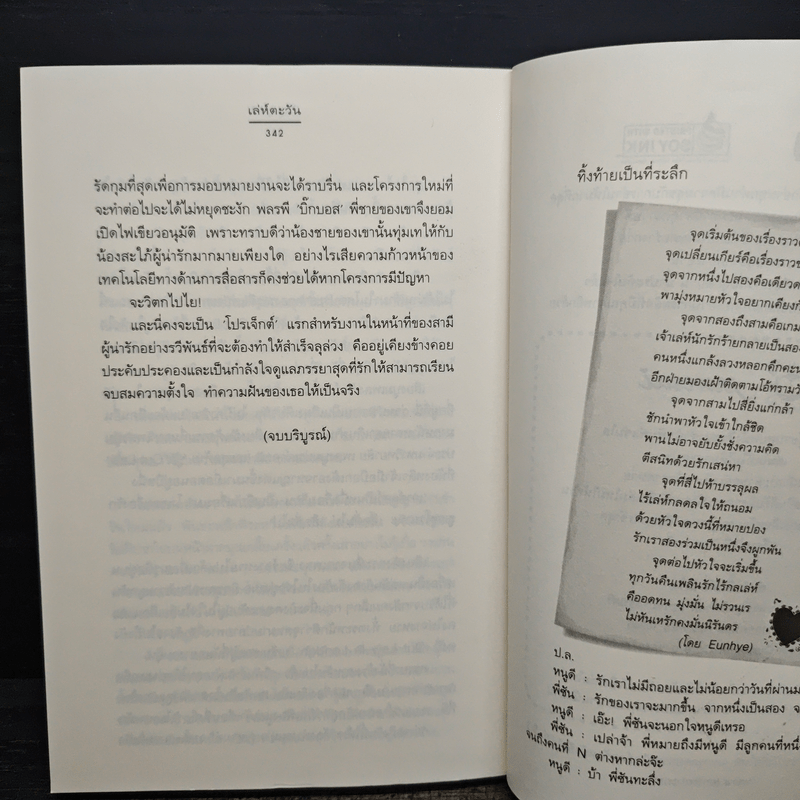 เล่ห์ตะวัน
342
รัดกุมที่สุดเพื่อการมอบหมายงานจะได้ราบรื่น และโครงการใหม่ที่
จะทำต่อไปจะได้ไม่หยุดชะงัก พลรพี ‘บิ๊กบอส’ พี่ชายของเขาจึงยอม
เปิดไฟเขียวอนุมัติ เพราะทราบดีว่าน้องชายของเขานั้นทุ่มเทให้กับ
น้องสะใภ้ผู้น่ารักมากมายเพียงใด อย่างไรเสียความก้าวหน้าของ
เทคโนโลยีทางด้านการสื่อสารก็คงช่วยได้หากโครงการมีปัญหา
จะวิตกไปไย!
และนี่คงจะเป็น ‘โปรเจ็กต์’ แรกสำหรับงานในหน้าที่ของสามี
ผู้น่ารักอย่างรวีพันธ์ที่จะต้องทำให้สำเร็จลุล่วง คืออยู่เคียงข้างคอย
ประคับประคองและเป็นกำลังใจดูแลภรรยาสุดที่รักให้สามารถเรียน
จบสมความตั้งใจ ทำความฝันของเธอให้เป็นจริง
(จบบริบูรณ์)
ทิ้งท้ายเป็นที่ระลึก
จุดเริ่มต้นของเรื่องราว
จุดเปลี่ยนเกียร์คือเรื่องราว
จุดจากหนึ่งไปสองคือเดียวด
พามุ่งหมายหัวใจอยากเคียง
จุดจากสองถึงสามคือเกม
เจ้าเล่ห์นักรักร้ายกลายเป็นสอง
คนหนึ่งแกล้งลวงหลอกคึกคะน
อีกฝ่ายมองเฝ้าติดตามโอ้ทราม
จุดจากสามไปสี่ยิ่งแก่กล้า
ชักนำพาหัวใจเข้าใกล้ชิด
พานไม่อาจยับยั้งชั่งความคิด
ตีสนิทด้วยรักเสน่หา
จุดที่สี่ไปห้าบรรลุผล
ไร้เล่ห์กลดลใจให้ถนอม
ด้วยหัวใจดวงนี้ที่หมายปอง
รักเราสองร่วมเป็นหนึ่งจึงผูกพัน
จุดต่อไปหัวใจจะเริ่มขึ้น
ทุกวันคืนเพลินรักไร้กลเล่ห์
คืออดทน มุ่งมั่น ไม่รวนเร
ไม่หันเหรักคงมั่นนิรันดร
(โดย Eunhye)
ป.ล.
หนูดี : รักเราไม่มีถอยและไม่น้อยกว่าวันที่ผ่านม
พี่ซัน : รักของเราจะมากขึ้น จากหนึ่งเป็นสอง จ
หนูดี : เอ๊ะ! พี่ซันจะนอกใจหนูดีเหรอ
พี่ซัน : เปล่าจ้า พี่หมายถึงมีหนูดี มีลูกคนที่หนึ่
จนถึงคนที่ N ต่างหากล่ะจ๊ะ
หนูดี : บ้า พี่ซันทะลึ่ง